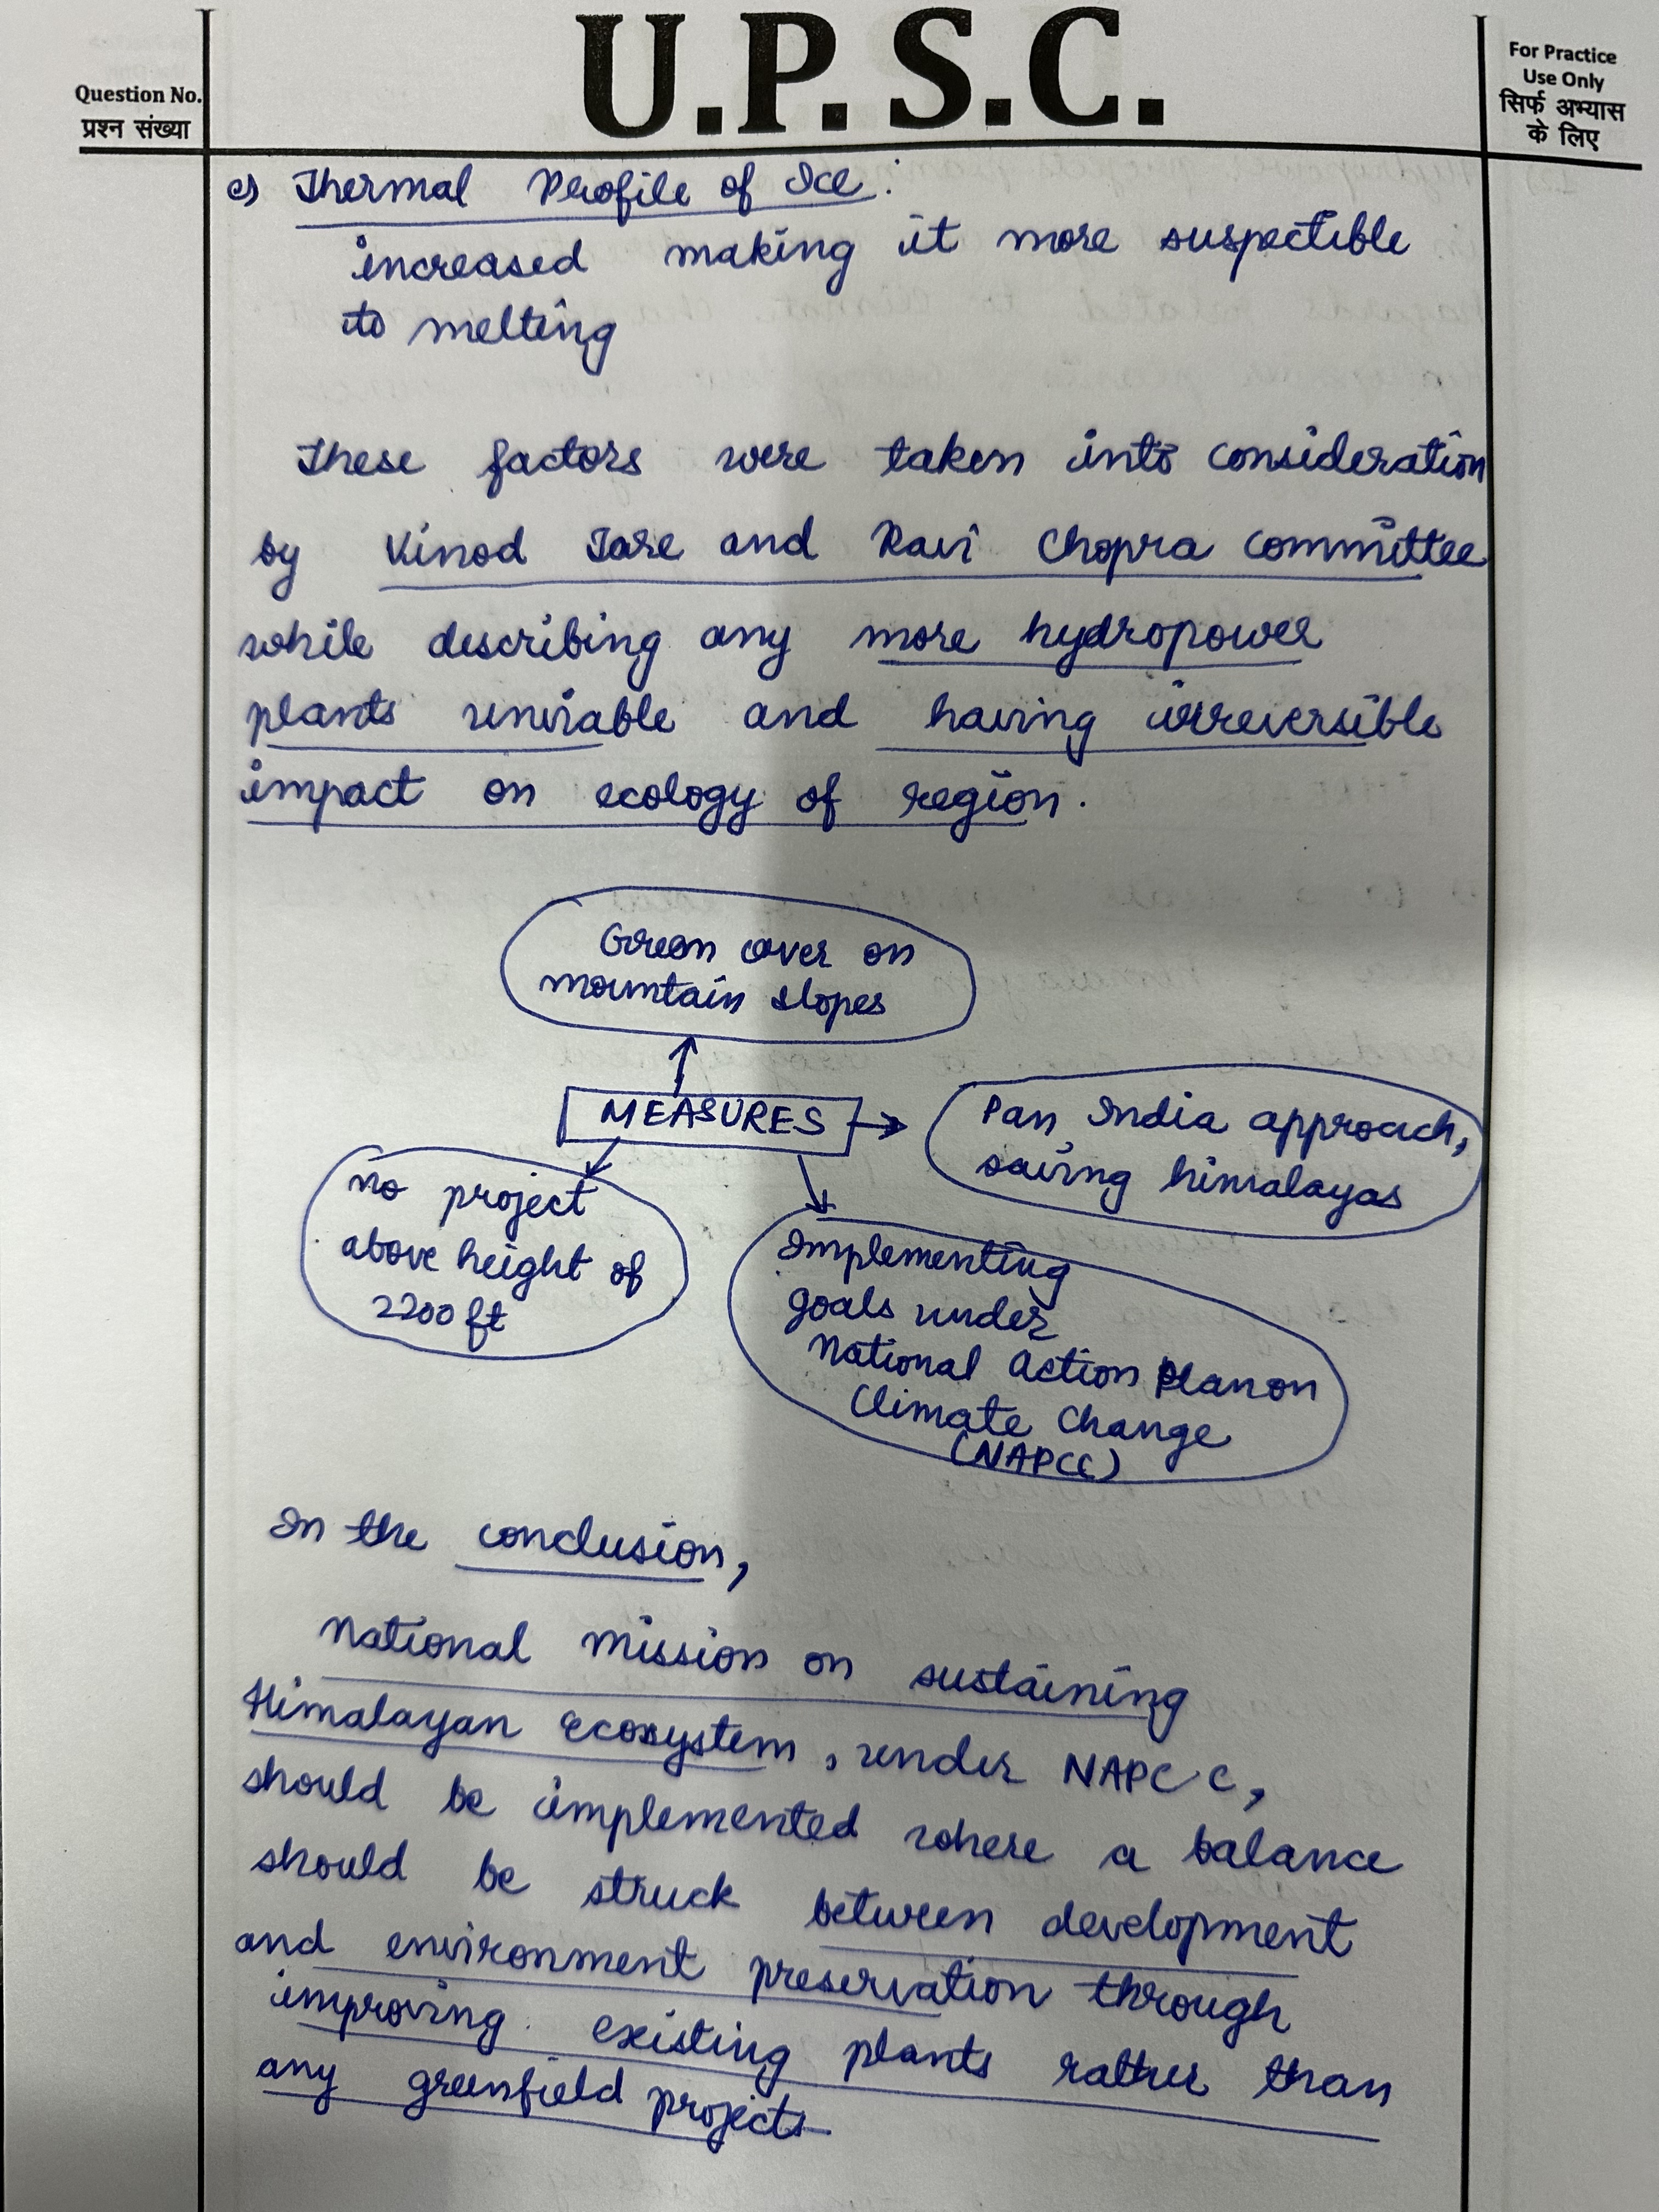 U.P.S.C.
Question No.
प्रश्न संख्या
For Practice
Use Only
सिर्फ अभ्यास
के लिए
c) Thermal Profile of Ice :
increased making it more suspectible
to melting
These factors were taken into consideration
by Vinod Tare and Ravi Chopra committee
while describing any more hydropower
plants unviable and having irreversible
impact on ecology of region.
Green cover on
mountain slopes
MEASURES
Pan India approach,
saving himalayas
no project
above height of
2200 ft
Implementing
goals under
National Action Plan on
Climate Change
(NAPCC)
In the conclusion,
National mission on sustaining
Himalayan ecosystem, under NAPCC,
should be implemented where a balance
should be struck between development
and environment preservation through
improving existing plants rather than
any greenfield projects